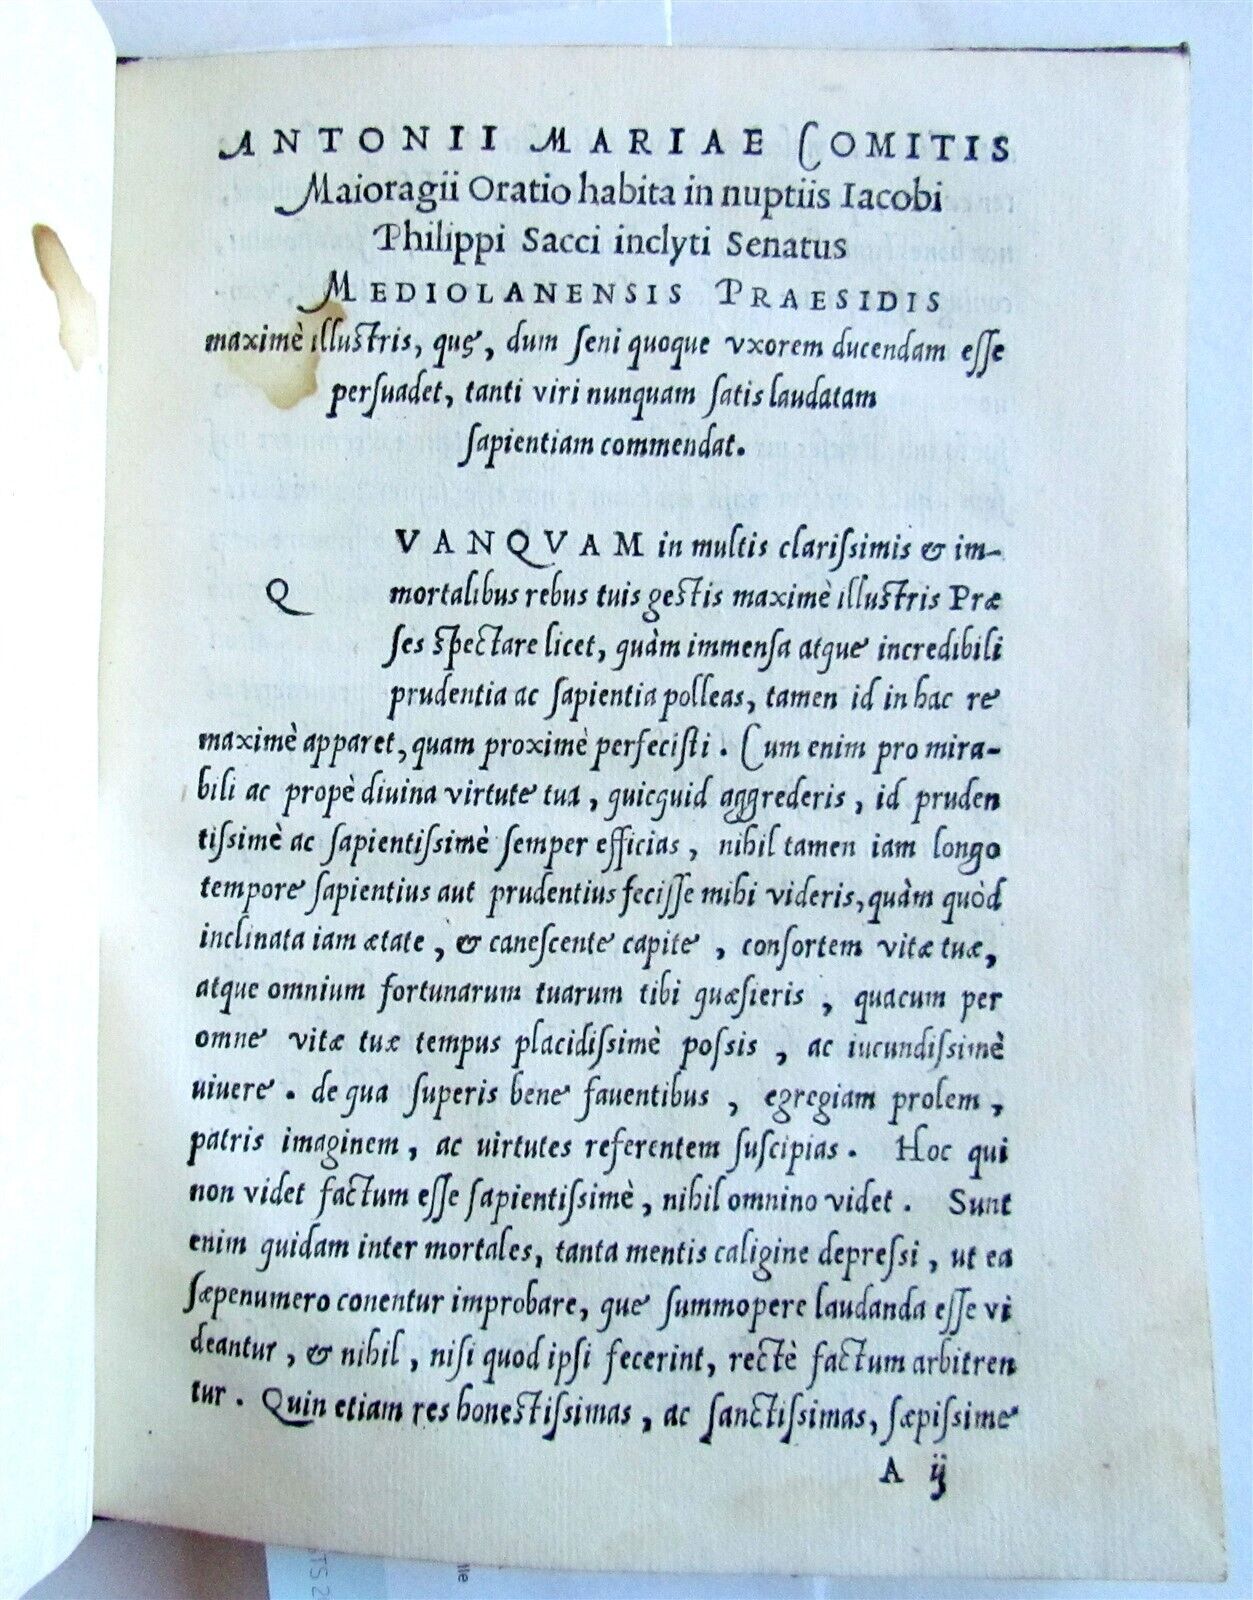 ANTONII MARIAE COMITIS
Maioragii Oratio habita in nuptiis Iacobi
Philippi Sacci inclyti Senatus
MEDIOLANENSIS PRAESIDIS
maximè illuſtris, quę, dum ſeni quoque vxorem ducendam eſſe
perſuadet, tanti viri nunquam ſatis laudatam
ſapientiam commendat.
VANQVAM in multis clariſsimis & im-
Q mortalibus rebus tuis geſtis maximè illuſtris Præ
ſes ſpectare licet, quàm immenſa atque incredibili
prudentia ac ſapientia polleas, tamen id in hac re
maximè apparet, quam proximè perfeciſti. Cum enim pro mira-
bili ac propè diuina virtute tua, quicquid aggrederis, id pruden
tiſsimè ac ſapientiſsimè ſemper efficias, nihil tamen iam longo
tempore ſapientius aut prudentius feciſſe mihi videris, quàm quòd
inclinata iam ætate, & caneſcente capite, conſortem vitæ tuæ,
atque omnium fortunarum tuarum tibi quæſieris, quacum per
omne vitæ tuæ tempus placidiſsimè poſsis, ac iucundiſsimè
uiuere. de qua ſuperis bene fauentibus, egregiam prolem,
patris imaginem, ac uirtutes referentem ſuſcipias. Hoc qui
non videt factum eſſe ſapientiſsimè, nihil omnino videt. Sunt
enim quidam inter mortales, tanta mentis caligine depreſsi, ut ea
ſæpenumero conentur improbare, que ſummopere laudanda eſſe vi
deantur, & nihil, niſi quod ipſi fecerint, rectè factum arbitren
tur. Quin etiam res honeſtiſsimas, ac ſanctiſsimas, ſæpiſsime
A ij